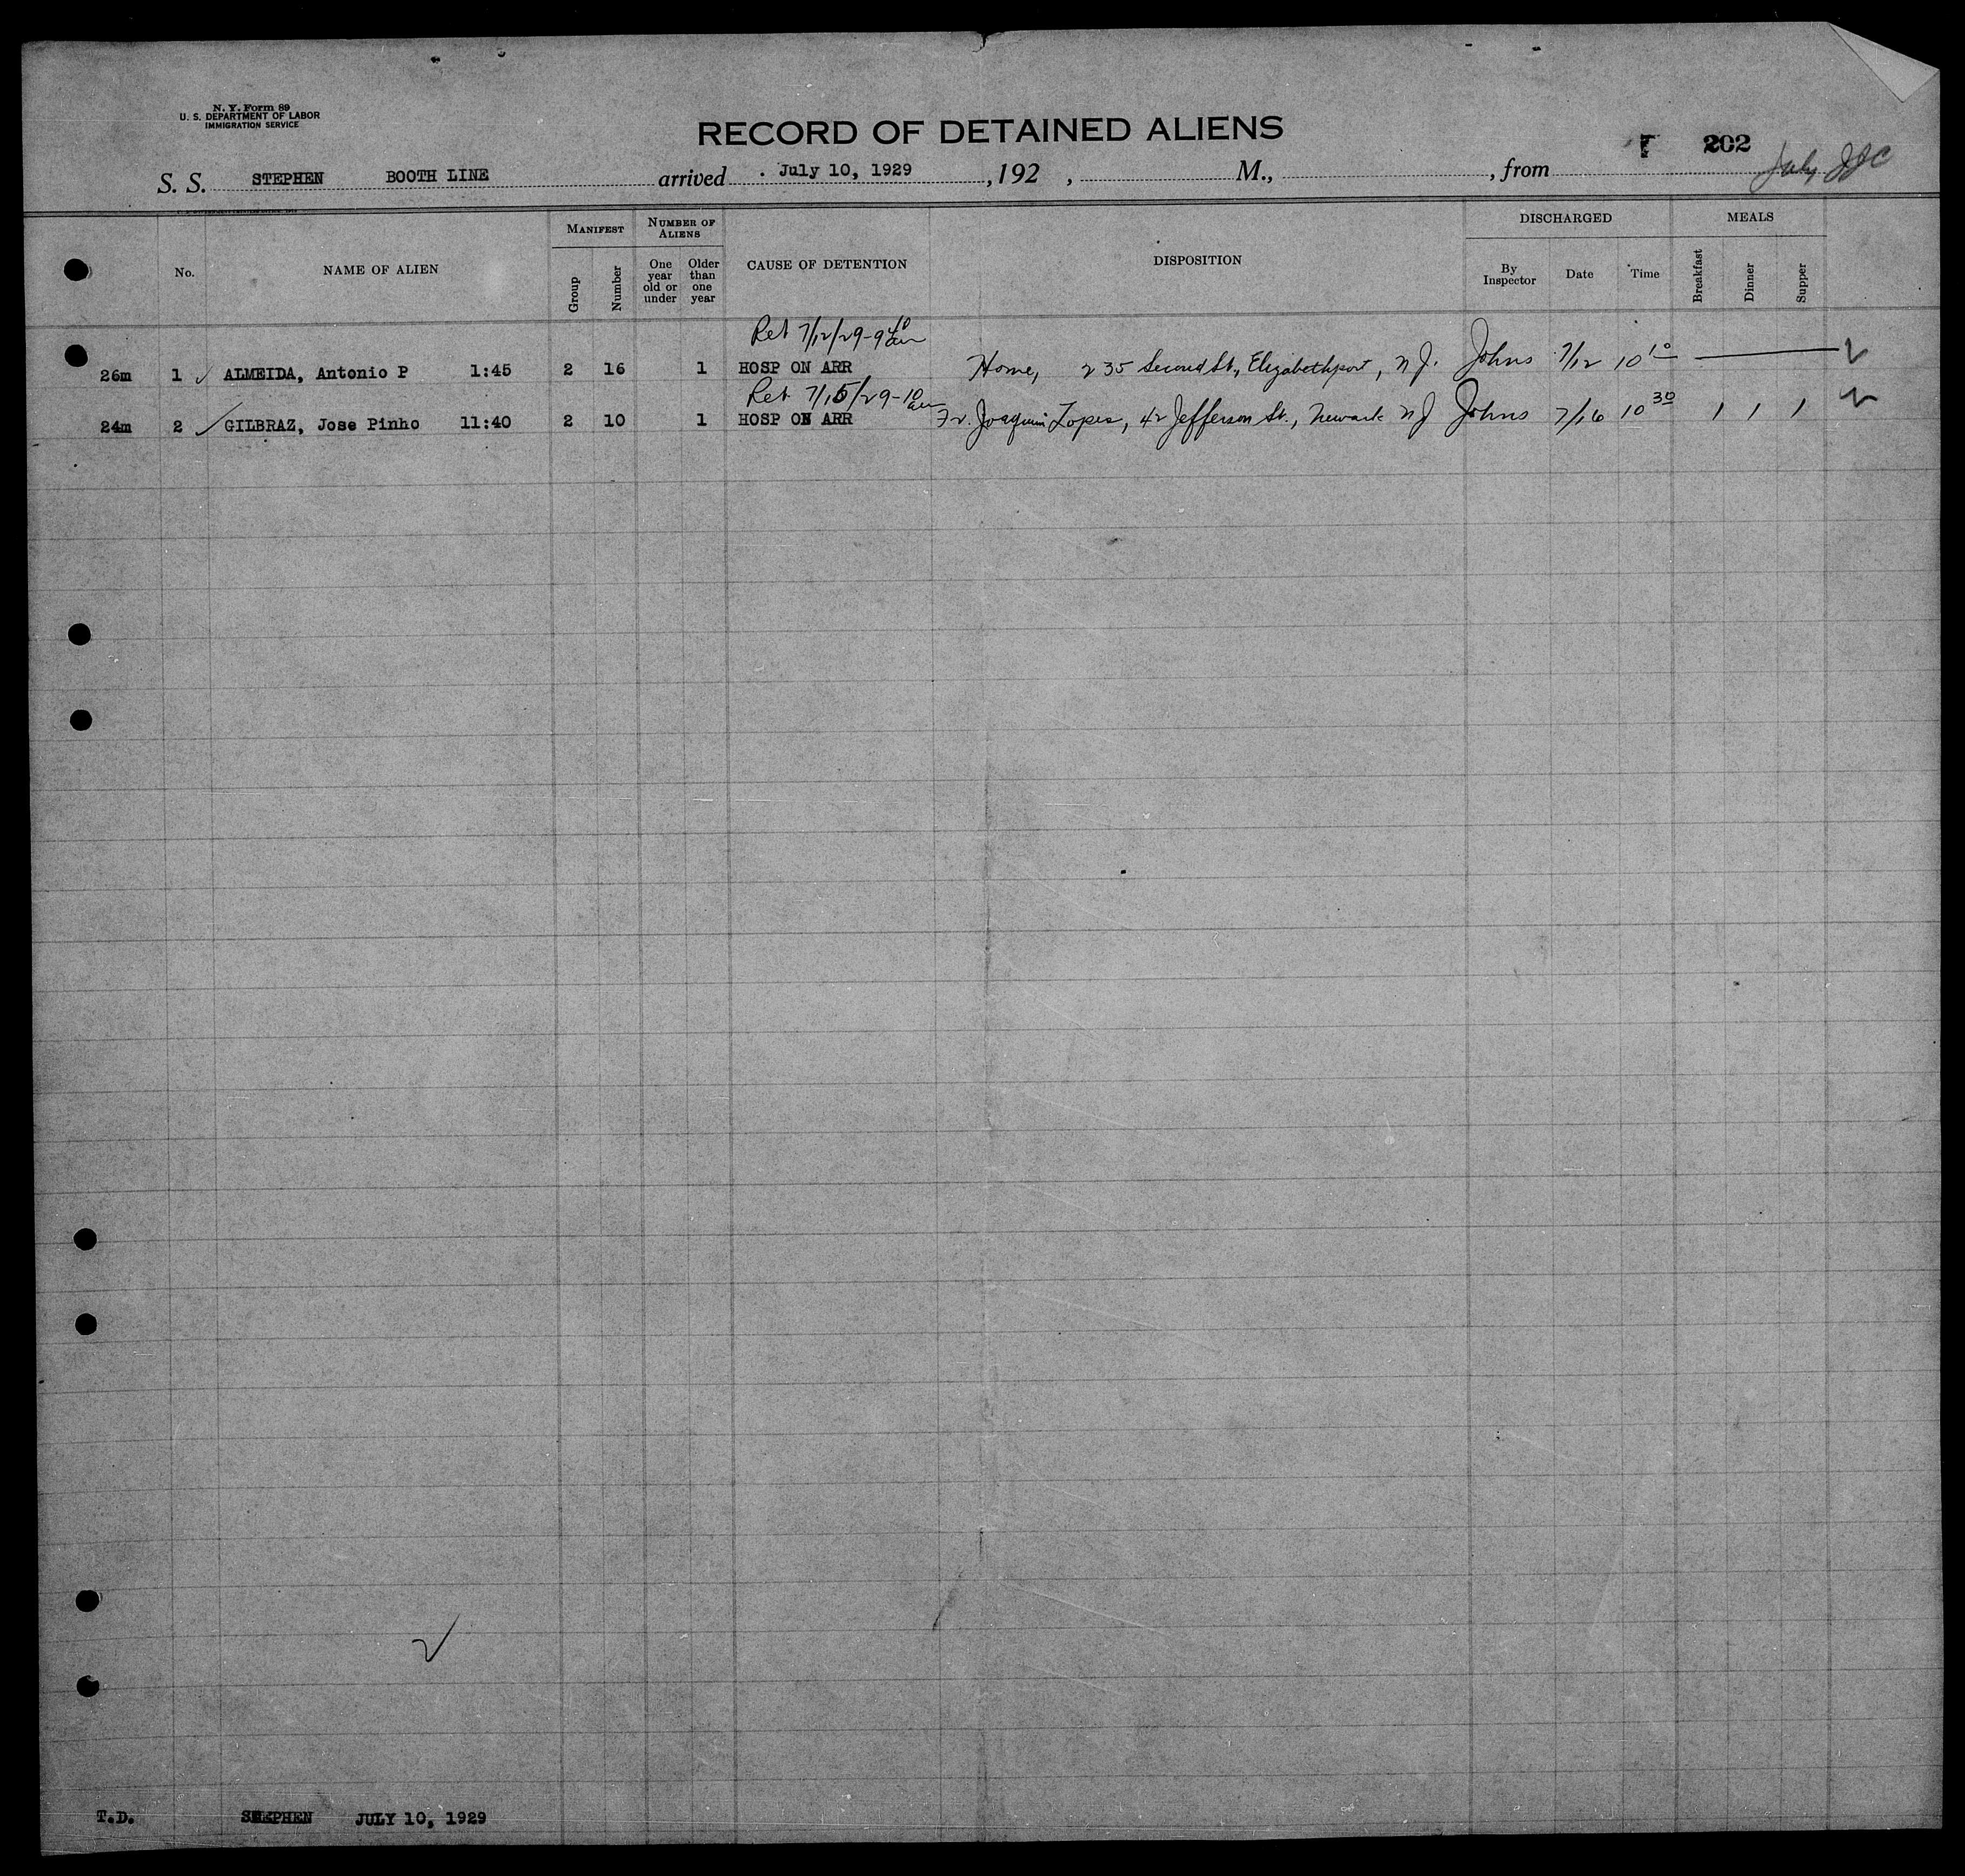 N. Y. Form 89
U. S. DEPARTMENT OF LABOR
IMMIGRATION SERVICE
RECORD OF DETAINED ALIENS
202
S. S. STEPHEN BOOTH LINE arrived July 10, 1929, 192 , M., , from July
No. NAME OF ALIEN MANIFEST Group Number NUMBER OF ALIENS One year old or under Older than one year CAUSE OF DETENTION DISPOSITION DISCHARGED By Inspector Date Time MEALS Breakfast Dinner Supper
Ret 7/12/29-9
26m 1 ALMEIDA, Antonio P 1:45 2 16 1 HOSP ON ARR Home, 235 Second St., Elizabethport, N J. Johns 7/12 10 10
Ret 7/15/29-10 am
24m 2 GILBRAZ, Jose Pinho 11:40 2 10 1 HOSP ON ARR Joaquim Lopes, 42 Jefferson St., Newark N J Johns 7/16 10 30 1 1 1
T.D. STEPHEN JULY 10, 1929